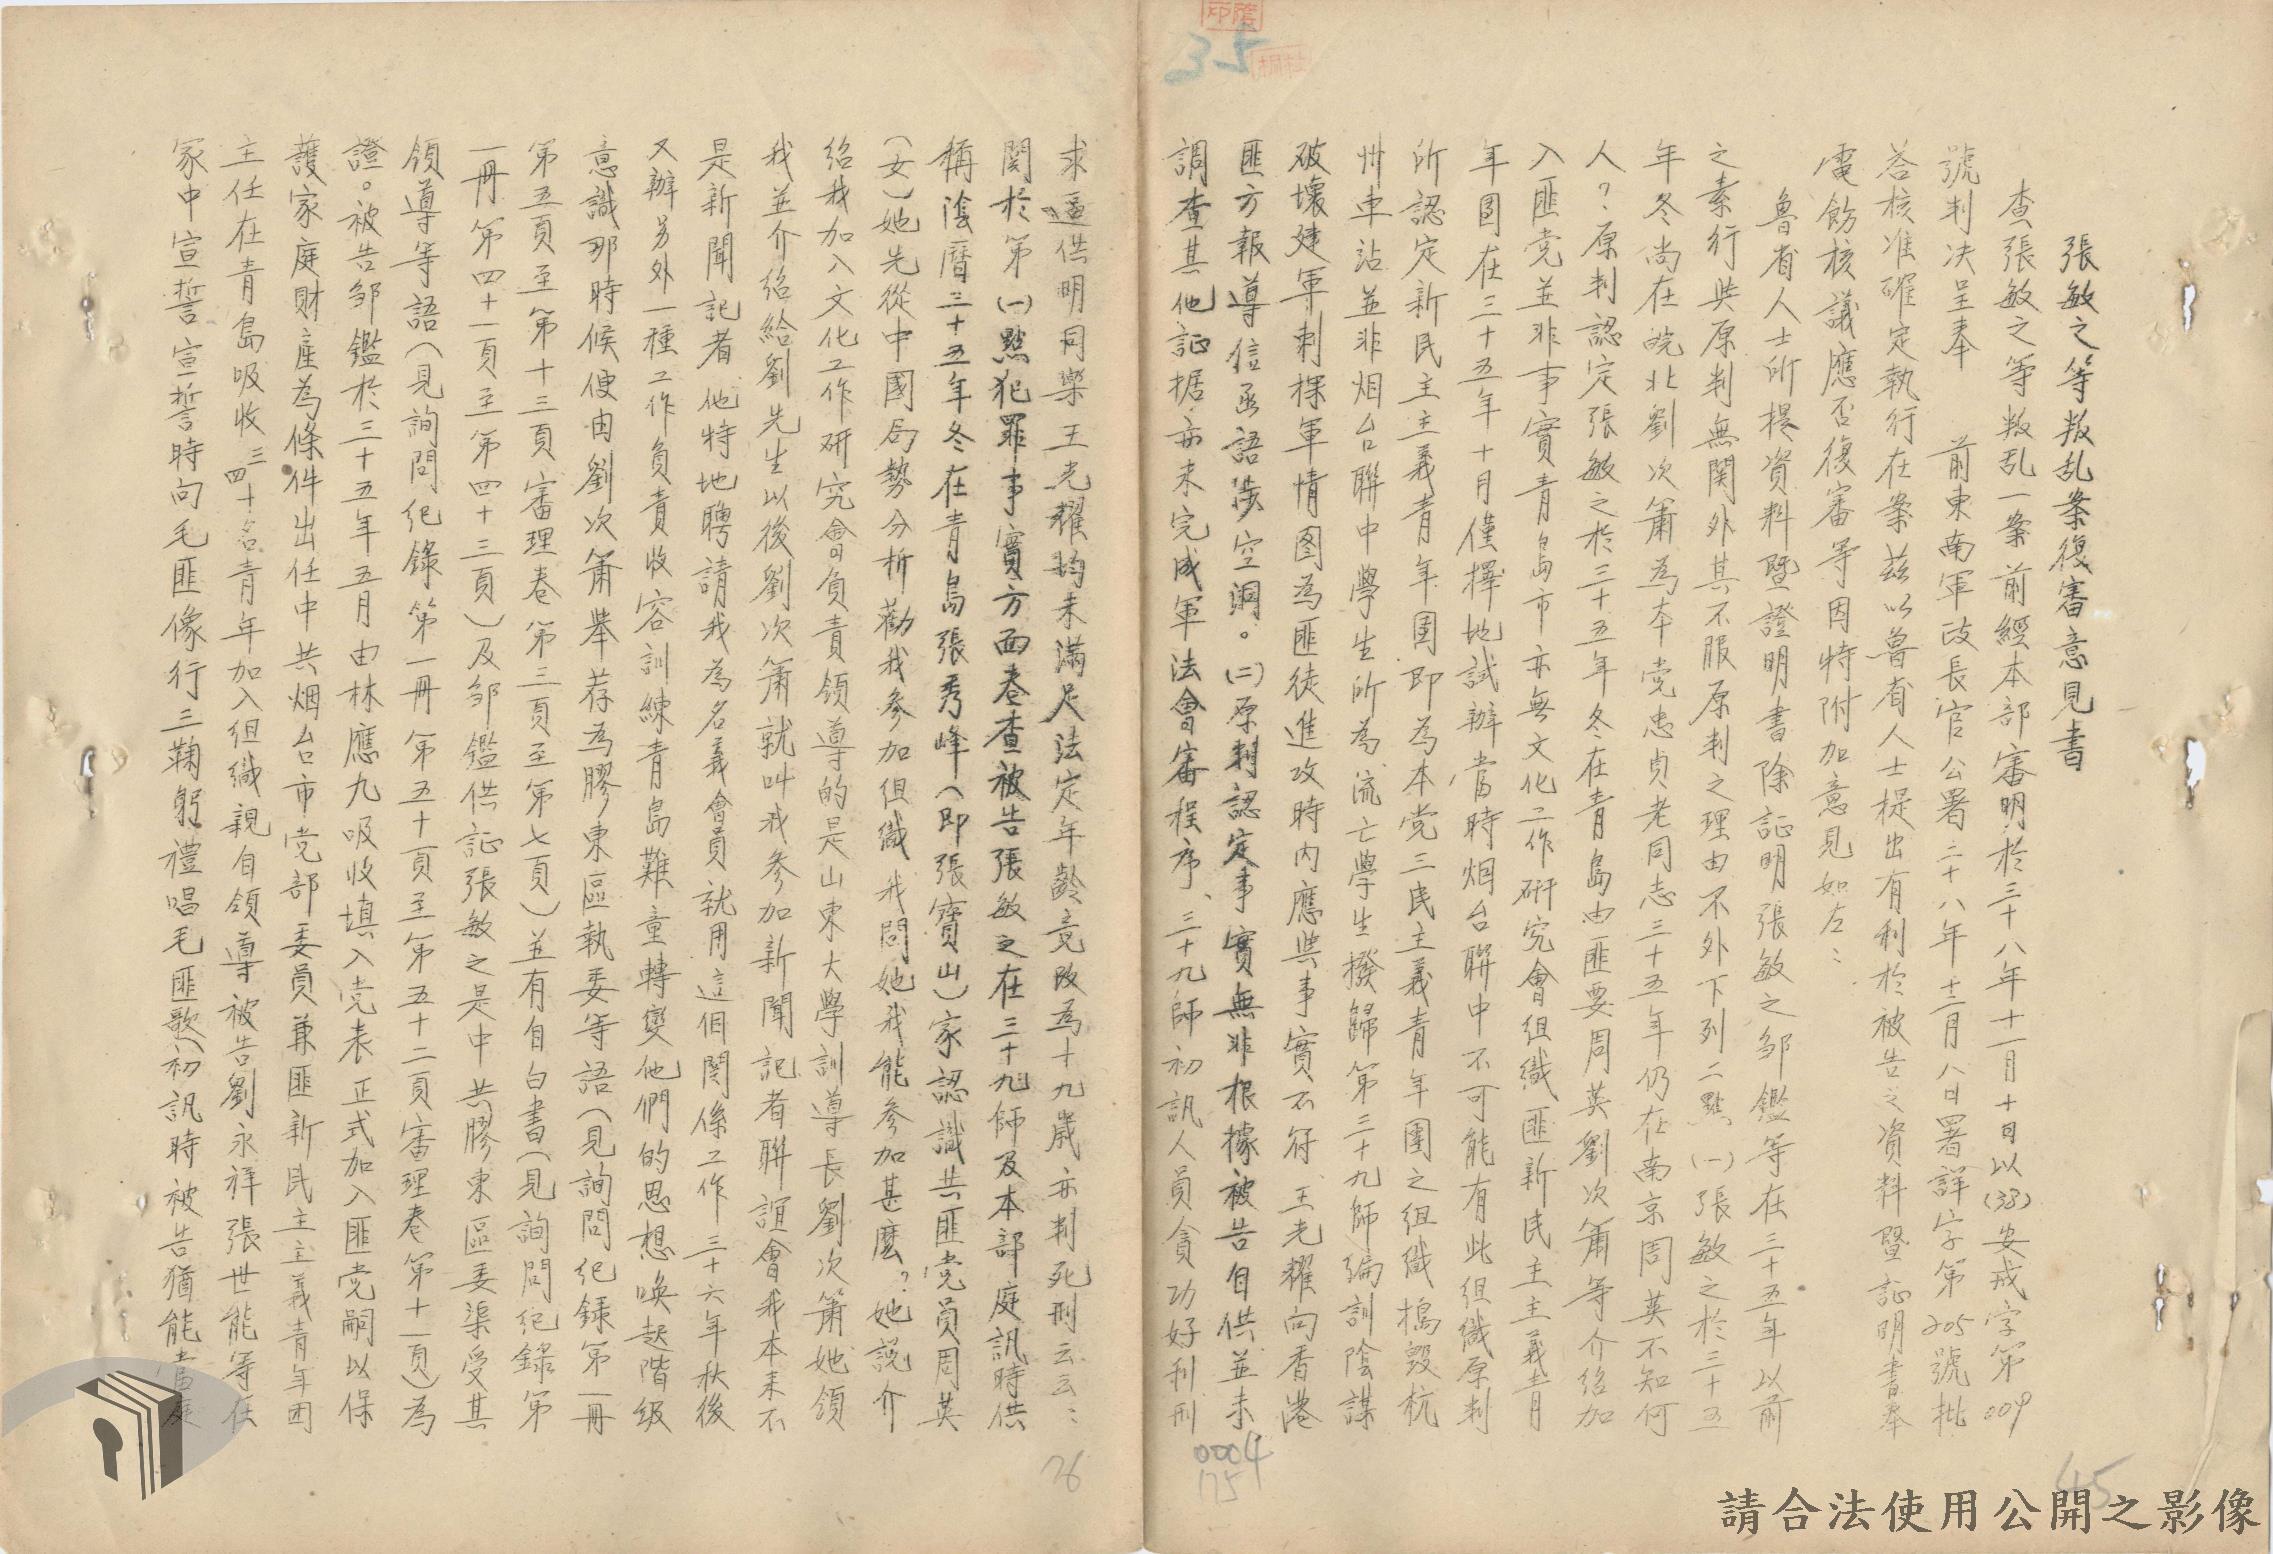 張敏之等叛乱案復審意見書
查張敏之等叛乱一案前經本部審明於三十八年十一月十日以(38)安戒字第009
號判决呈奉　前東南軍政長官公署三十八年十二月八日署詳字第205號批
答核准確定執行在案茲以魯省人士提出有利於被告之資料暨証明書奉
電飭核議應否復審等因特附加意見如左：
魯省人士所提資料暨證明書除証明張敏之鄒鑑等在三十五年以前
之素行與原判無関外其不服原判之理由不外下列二點(一)張敏之於三十五
年冬尚在皖北劉次簫為本党忠貞老同志三十五年仍在南京周英不知何
人？原判認定張敏之於三十五年冬在青島由匪要周英劉次簫等介绍加
入匪党並非事實青島市亦無文化工作研究會組織匪新民主主義青
年團在三十五年十月僅擇地試辦當時烟台聯中不可能有此組織原判
所認定新民主主義青年團即為本党三民主義青年團之組織搗毀杭
州車站並非烟台聯中學生所為流亡學生撥歸第三十九師編訓陰謀
破壞建軍刺探軍情图為匪徒進攻時内應與事實不符王光耀向香港
匪方報導信函語涉空洞。(二)原判認定事實無非根據被告自供並未
調查其他証据亦未完成軍法會審程序、三十九師初訊人員貪功好利刑
求逼供明同樂王光耀均未滿足法定年齡竟改為十九歲亦判死刑云云：
関於第(一)點犯罪事實方面卷查被告張敏之在三十九師及本部庭訊時供
稱陰曆三十五年冬在青島張秀峰(即張寶山)家認識共匪党員周英
(女)她先從中國局勢分析勸我參加组織我問她我能參加甚麽？她説介
绍我加入文化工作研究會負責領導的是山東大學訓導長劉次簫她領
我並介绍給劉先生以後劉次簫就叫我參加新聞記者聯誼會我本来不
是新聞記者他特地聘請我為名義會員就用這個関係工作三十六年秋後
又辦另外一種工作負責收容訓練青島難童轉變他們的思想喚起階级
意識那時候便由劉次簫舉荐為膠東區執委等語(見詢問纪錄第一冊
第五頁至第十三頁審理卷第三頁至第七頁)並有自白書(見詢問纪錄第
一冊第四十一頁至第四十三頁)及邹鑑供証張敏之是中共膠東區委渠受其
領導等語(見詢問纪錄第一冊第五十頁至第五十二頁審理卷第十一頁)為
證。被告邹鑑於三十五年五月由林應九吸收填入党表正式加入匪党嗣以保
護家庭財產為條件出任中共烟台市党部委員兼匪新民主主義青年团
主任在青島吸收三四十名青年加入组織親自領導被告劉永祥張世能等在
家中宣誓宣誓時向毛匪像行三鞠躬禮唱毛匪歌初訊時被告猶能當庭
35
0004
175
26
45
請合法使用公開之影像